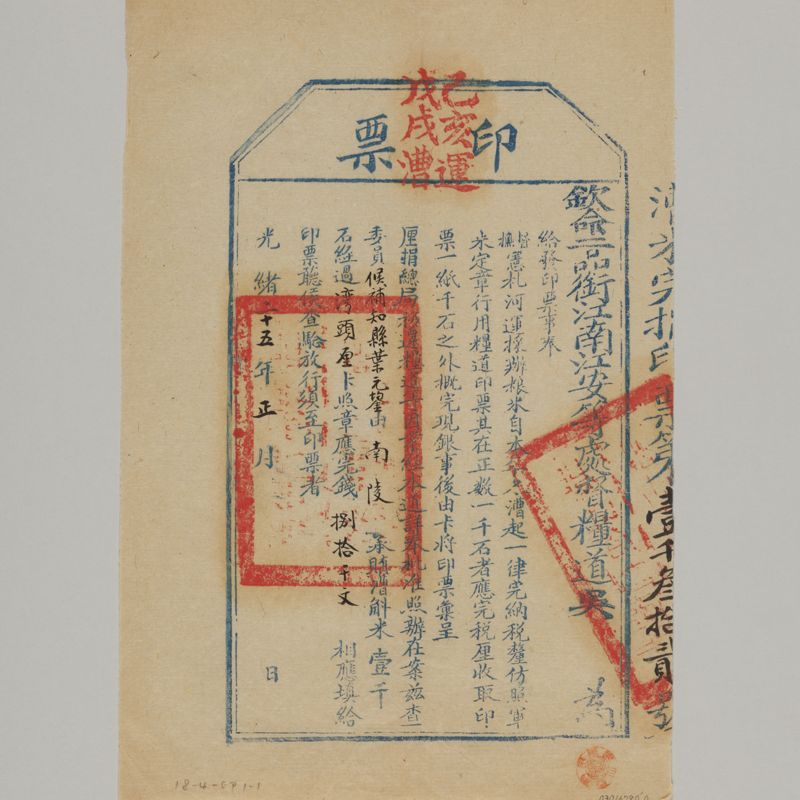 漕米完捐印票第壹千叁拾貳號
印票
己亥運
戊戌漕
欽命二品銜江南江安等處督糧道吳 為
給發印票事奉
督撫憲札河運採辦粮米自本漕起一律完納稅釐仿照軍
米定章行用糧道印票其在正數一千石者應完稅厘收取印
票一紙千石之外概完現銀事後由卡將印票彙呈
厘捐總局 札准照辦在案茲查
委員候補知縣葉元鋆由南陵 承購漕斛米壹千
石經過灣頭厘卡照章應完錢捌拾千文 相應填給
印票聽候查驗放行須至印票者
光緒二十五年正月 日
18-4-SP1-1